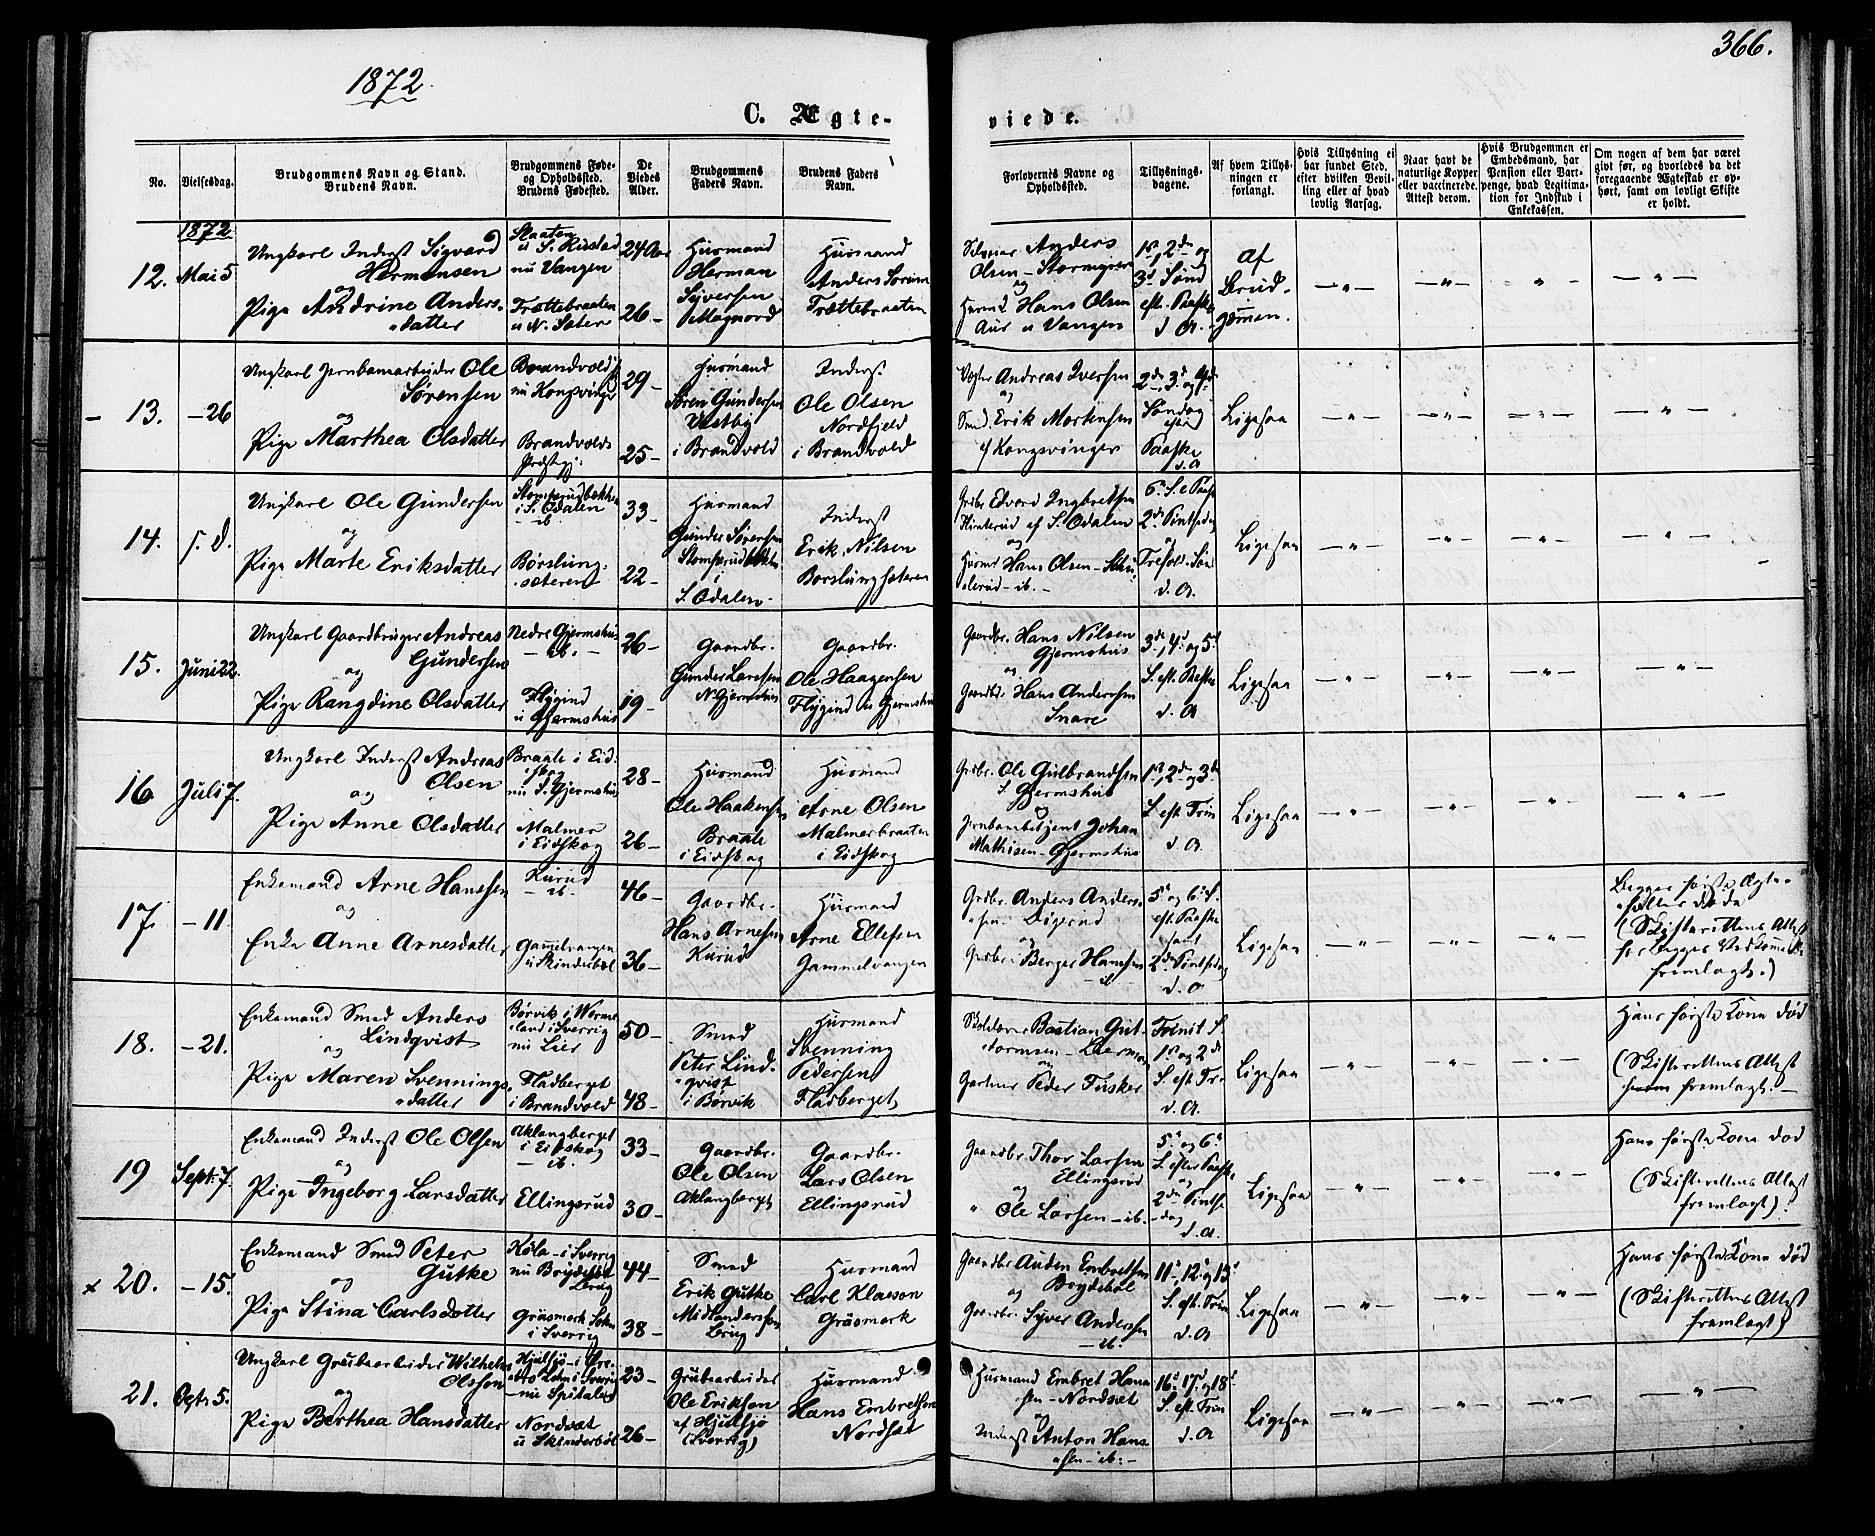 366.
1872.
C. Ægteviede.
No.
Vielsesdag.
Brudgommens Navn og Stand.
Brudens Navn.
Brudgommens Føde-
og Opholdssted.
Brudens Fødested.
De
Viedes
Alder.
Brudgommens
Faders Navn.
Brudens Faders
Navn.
Forlovernes Navne og
Opholdssted.
Tillysnings-
dagene.
Af hvem Tillys-
ningen er
forlangt.
Hvis Tillysning ei
har fundet Sted,
efter hvilken Bevil-
ling eller af hvad
lovlig Aarsag.
Naar havt de
naturlige Kopper
eller vaccinerede.
Attest derom.
Hvis Brudgommen er
Embedsmand, har
Pension eller Vart-
penge, hvad Legitima-
tion for Indskud i
Enkekassen.
Om nogen af dem har været
gift før, og hvorledes da det
foregaaende Ægteskab er op-
hørt, samt om lovligt Skifte
er holdt.
1872
12. Mai 5
Ungkarl Inderst Sigvard
Hermansen
og
Pige Andrine Anders-
datter
Staaten
u S. Rustad
nu Vangen
Trættebraaten
u N. Sæter
24 Aar
26 -
Husmand
Herman
Syversen
Magnord
Husmand
Anders
Trættebraaten
Anders
Olsen - Stormyren
og
Husmd Hans Olsen
Aur u Vangen
1ste, 2den og
3d Sønd
eft. Paaske
d. A.
Af
Brud-
gommen.
- " - - " - - " - - " -
13. - 26
Ungkarl Jernbanearbeider Ole
Sørensen
og
Pige Marthea Olsdatter
Brandvold
nu Kongsvinger
Brandvolds
Præstegj:
29 -
25 -
Husmand
Søren Gundersen
Vestby
i Brandvold
Inderst
Ole Olsen
Nordfjeld
i Brandvold
Vogter Andreas Iversen
og
Smed Erik Mortensen
af Kongsvinger
2den, 3d og 4de
Søndag
efter
Paaske
d. A
Ligesaa
- " - - " - - " - - " -
14. s. d.
Ungkarl Ole Gundersen
og
Pige Marte Eriksdatter
Stomperudbakken
i S. Odalen
- ib.
Børslung-
sæteren
33 -
22 -
Husmand
Gunder Sørensen
Stomperudbakken
i
S. Odalen
Inderst
Erik Nilsen
Børslungsæteren
Grdbr Edvard Ingbretsen
af S. Odalen
og
Husmd Hans Olsen - Skin
derud - ib. -
6te S. e Paaske
2den Pintsedag
og
Trefold. Søn
d. A.
Ligesaa
- " - - " - - " - - " -
15. Juni 22.
Ungkarl Gaardbruger Andreas
Gundersen
og
Pige Rangdine Olsdatter
Nedre Gjermshus
- ib. -
Flygind
u Gjermshus
26 -
19 -
Gaardbr.
Gunder Larsen
N. Gjermshus
Gaardbr.
Ole Haagensen
Flygind u Gjermshus
Gaardbr. Hans Nilsen
Gjermshus
og
Gaardbr. Hans Andersen
Snare
3de, 4d og 5d
S. eft. Paaske
d. A
Ligesaa
- " - - " - - " - - " -
16 Juli 7.
Ungkarl Inderst Andreas
Olsen
og
Pige Anne Olsdatter
Braate i Eid-
skog
nu S. Gjermshus
Malmer
i Eidskog
28 -
26 -
Husmand
Ole Haakensen
Braate
i Eidskog
Husmand
Arne Olsen
Malmerbraaten
i Eidskog
Grdbr. Ole Gulbrandsen
S. Gjermshus
og
Jernbanebetjent Johan
Mathisen - Gjermshus
1ste, 2den og 3de
S. eft. Trin
d. A.
Ligesaa
- " - - " - - " - - " -
17. - 11.
Enkemand Arne Hanssen
og
Enke Anne Arnesdatter
Kurud
- ib. -
Gammelvangen
u Skinderbøl
46 -
36 -
Gaardbr.
Hans Arnesen
Kurud
Husmand
Arne Ellefsen
Gammelvangen
Grdbr. Anders Anders-
sen Digerud
og
Grdbr. Berger Hanssen
- ib
5te og 6te S.
eft. Paaske
samt
2den Pintsedag
d. A
Ligesaa
- " - - " - - " -
Begges første Ægte-
fæller døde
(Skifterettens Attest
for begges Vedkommende
fremlagt.)
18. - 21.
Enkemand Smed Anders
Lindqvist
og
Pige Maren Svennings-
datter
Børvik i Werme-
land i Sverrig
nu Lier
Fladberget
i Brandvold
50 -
48 -
Smed
Peter Lind-
qvist
i Børvik
Husmand
Svenning
Pedersen
Fladberget
Skolelærer Bastian Gut-
tormsen - Lierma
og
Gartner Peder Fusker
Trinit S.
1ste og 2den
S. eft Tr.
d. A.
Ligesaa
- " - - " - - " -
Hans første Kone død
(Skifterettens Attest
fremlagt. -
19 Sept. 7.
Enkemand Inderst Ole Olsen
og
Pige Ingeborg Larsdatter
Aklangberget
i Eidskog
- ib.
Ellingsrud
33 -
30 -
Gaardbr.
Ole Olsen
Aklangberget
Gaardbr.
Lars Olsen
Ellingsrud
Gaardbr Thor Larsen
Ellingsrud
og
" Ole Larsen - ib.
5te og 6te
S. efter Paaske
og
2den Pintse-
dag
d. A.
Ligesaa
- " - - " - - " -
Hans første Kone død
(Skifterettens Attest
fremlagt).
x 20. - 15.
Enkemand Smed Peter
Gutke
og
Pige Stina Carlsdotter
Køla - i Sverrig
nu Brydebøl
Brug
Gräsmark Sokn
i Sverrig
44 -
38 -
Smed
Erik Gutke
Brug
Husmand
Carl Klaeson
Gräsmark
Gaardbr Auden Embretsen
Brydebøl
og
Gaardbr. Syver Andersen
- ib.
11te, 12te og 13d
S. eft. Trin
d. A
Ligesaa
- " - - " - - " -
Hans første Kone død
(Skifterettens Attest
fremlagt)
21. Octr. 5.
Ungkarl Grubearbeider Wilhelm
Olsson
og
Pige Berthea Hansdatter
Hjulsjø - i Ore-
bro Lehn i Sverrig
- nu Spitalen
Nordsæt
u Skinderbøl
23 -
26 -
Grubearbeider
Ole Erikson
af Hjulsjø
(Sverrig)
Husmand
Hans Embretsen
Nordsæt
Husmand Embret Hans-
sen - Nordsæt
og
Inderst Anton Hans-
sen - ib. -
16d, 17d og 18d
S. eft. Trin
d. A
Ligesaa
- " - - " - - " - - " -